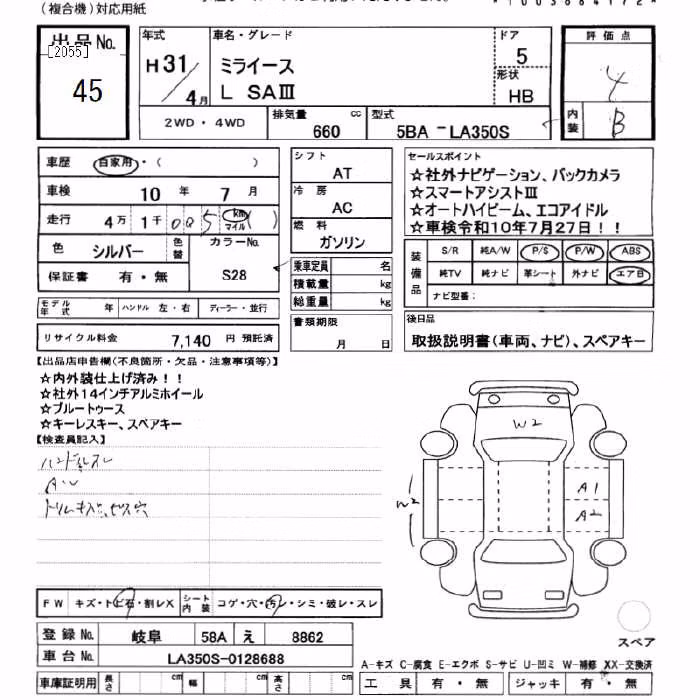 (複合機)対応用紙
出品No.
[2055]
45
年式
H31/4月
車名・グレード
ミライース
L SAⅢ
ドア
5
形状
HB
評価点
4
内装
B
2WD・4WD
排気量 cc
660
型式
5BA -LA350S
車歴 自家用・( )
車検 10 年 7 月
走行 4万 1千 005 km マイル ( )
色 シルバー 色替
カラーNo.
S28
保証書 有・無
モデル年式 年 ハンドル 左・右 ディーラー・並行
リサイクル料金 7,140 円 預託済
シフト
AT
冷房
AC
燃料
ガソリン
乗車定員 名
積載量 kg
総重量 kg
書類期限
月 日
セールスポイント
☆社外ナビゲーション、バックカメラ
☆スマートアシストⅢ
☆オートハイビーム、エコアイドル
☆車検令和10年7月27日!!
装備品
S/R 純A/W P/S P/W ABS
純TV 純ナビ 革シート 外ナビ エア日
ナビ型番:
後日品
取扱説明書(車両、ナビ)、スペアキー
【出品店申告欄(不良箇所・欠品・注意事項等)】
☆内外装仕上げ済み!!
☆社外14インチアルミホイール
☆ブルートゥース
☆キーレスキー、スペアキー
【検査員記入】
ハンドルスレ
トリムキズ、ビス穴
W2
W2
A1
A2
FW キズ・トビ石・割レX
シート内装 コゲ・穴・汚レ・シミ・破レ・スレ
登録No. 岐阜 58A え 8862
車台No. LA350S-0128688
スペア
A-キズ C-腐食 E-エクボ S-サビ U-凹ミ W-補修 XX-交換済
車庫証明用 長さ cm 幅 cm 高さ cm
工具 有・無 ジャッキ 有・無